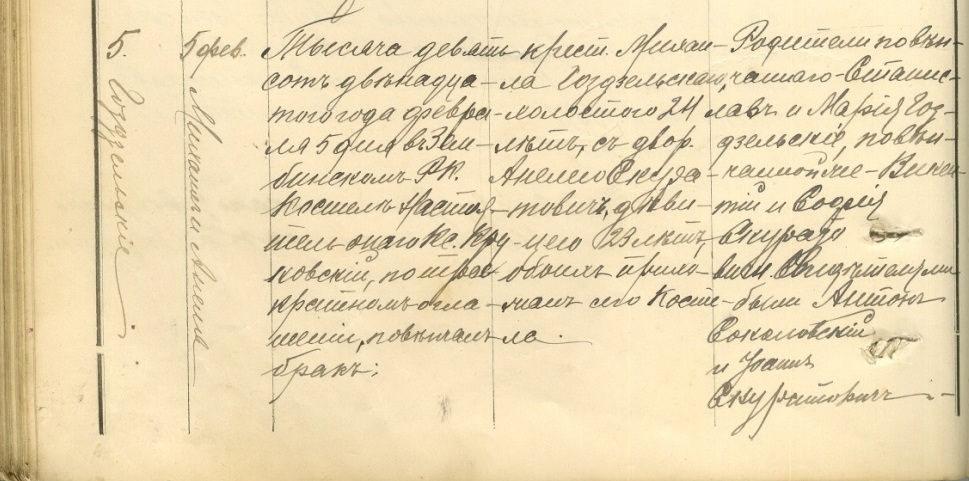 5.
Гоздзельскіе
5 фев.
Михаил и Анеля
Тысяча девять-
сотъ двѣнадца-
того года февра-
ля 5 дня въ Зем-
бинскомъ Р.К.
Костелѣ Настоя-
тель онаго Кс. Кру-
ковскій, по трое-
кратномъ огла-
шеніи, повѣнчалъ
бракъ:
крест. Михаи-
ла Гоздзельскаго,
холостого 24
лѣтъ, съ двор.
Анелею Скура-
товичъ, дѣви-
цею 23 лѣтъ,
обоихъ прихо-
жанъ сего Косте-
ла.
Родители повѣн-
чаннаго - Станис-
лавъ и Марія Гоз-
дзельскіе, повѣн-
чанной же - Викен-
тій и Софія
Скурато
вичи. Свидѣтелями
были Антонъ
Соколовскій
и Іоаннъ
Скуратовичъ.-